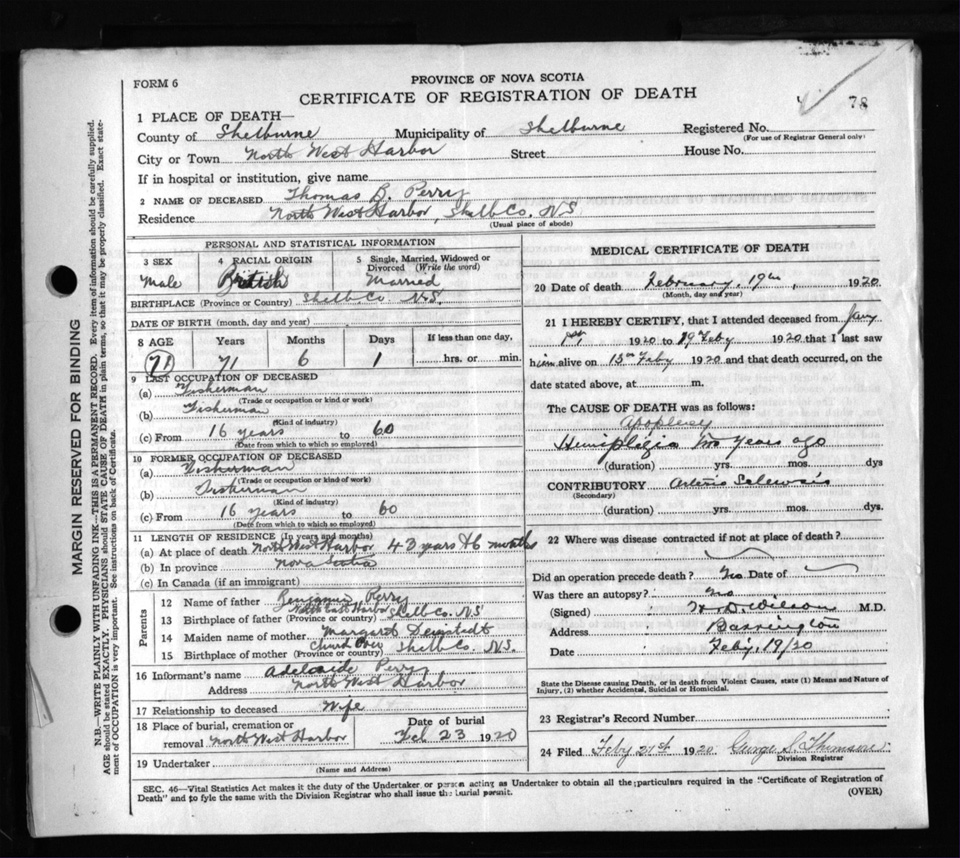 PROVINCE OF NOVA SCOTIA
FORM 6
CERTIFICATE OF REGISTRATION OF DEATH
78
1 PLACE OF DEATH—
County of Shelburne Municipality of Shelburne Registered No.
(For use of Registrar General only)
City or Town North West Harbor Street House No.
If in hospital or institution, give name
2 NAME OF DECEASED Thomas B. Perry
Residence North West Harbor, Shelb Co. N.S
(Usual place of abode)
PERSONAL AND STATISTICAL INFORMATION
3 SEX 4 RACIAL ORIGIN 5 Single, Married, Widowed or Divorced (Write the word)
Male British Married
BIRTHPLACE (Province or Country) Shelb Co. N.S.
DATE OF BIRTH (month, day and year)
8 AGE Years Months Days If less than one day,
71 71 6 1 hrs. or min.
9 LAST OCCUPATION OF DECEASED
(a) Fisherman
(Trade or occupation or kind or work)
(b) Fisherman
(Kind of industry)
(c) From 16 years to 60
(Date from which to which so employed)
10 FORMER OCCUPATION OF DECEASED
(a) Fisherman
(Trade or occupation or kind of work)
(b) Fisherman
(Kind of industry)
(c) From 16 years to 60
(Date from which to which so employed)
11 LENGTH OF RESIDENCE (In years and months)
(a) At place of death North West Harbor 43 years & 6 months
(b) In province Nova Scotia
(c) In Canada (if an immigrant)
Parents
12 Name of father Benjamin Perry
13 Birthplace of father (Province or country) Harbor Shelb Co. N.S
14 Maiden name of mother Margaret
15 Birthplace of mother (Province or country) Church Over Shelb Co. N.S.
16 Informant's name Adelaide Perry
Address North West Harbor
17 Relationship to deceased Wife
18 Place of burial, cremation or Date of burial
removal North West Harbor Feb 23 1920
19 Undertaker
(Name and Address)
MEDICAL CERTIFICATE OF DEATH
20 Date of death February, 19th, 1920
(Month, day and year)
21 I HEREBY CERTIFY, that I attended deceased from Jany
1st, 1920 to 19 Feby 1920 that I last saw
him alive on 15th Feby 1920 and that death occurred, on the
date stated above, at m.
The CAUSE OF DEATH was as follows:
Apoplexy
Hemiplegia two years ago
(duration) yrs. mos. dys
CONTRIBUTORY Arterio
(Secondary)
(duration) yrs. mos. dys.
22 Where was disease contracted if not at place of death?
Did an operation precede death? No Date of
Was there an autopsy? No
(Signed) H. D. Wilson M.D.
Address Barrington
Date Feby, 19/20
State the Disease causing Death, or in death from Violent Causes, state (1) Means and Nature of
Injury, (2) whether Accidental, Suicidal or Homicidal.
23 Registrar's Record Number
24 Filed Feby 21st 1920 George S.
Division Registrar
SEC. 46—Vital Statistics Act makes it the duty of the Undertaker or person acting as Undertaker to obtain all the particulars required in the "Certificate of Registration of
Death" and to fyle the same with the Division Registrar who shall issue the burial permit. (OVER)
MARGIN RESERVED FOR BINDING
N.B.—WRITE PLAINLY WITH UNFADING INK—THIS IS A PERMANENT RECORD. Every item of information should be carefully supplied.
AGE should be stated EXACTLY. PHYSICIANS should STATE CAUSE OF DEATH in plain terms, so that it may be properly classified. Exact state-
ment of OCCUPATION is very important. See instructions on back of Certificate.